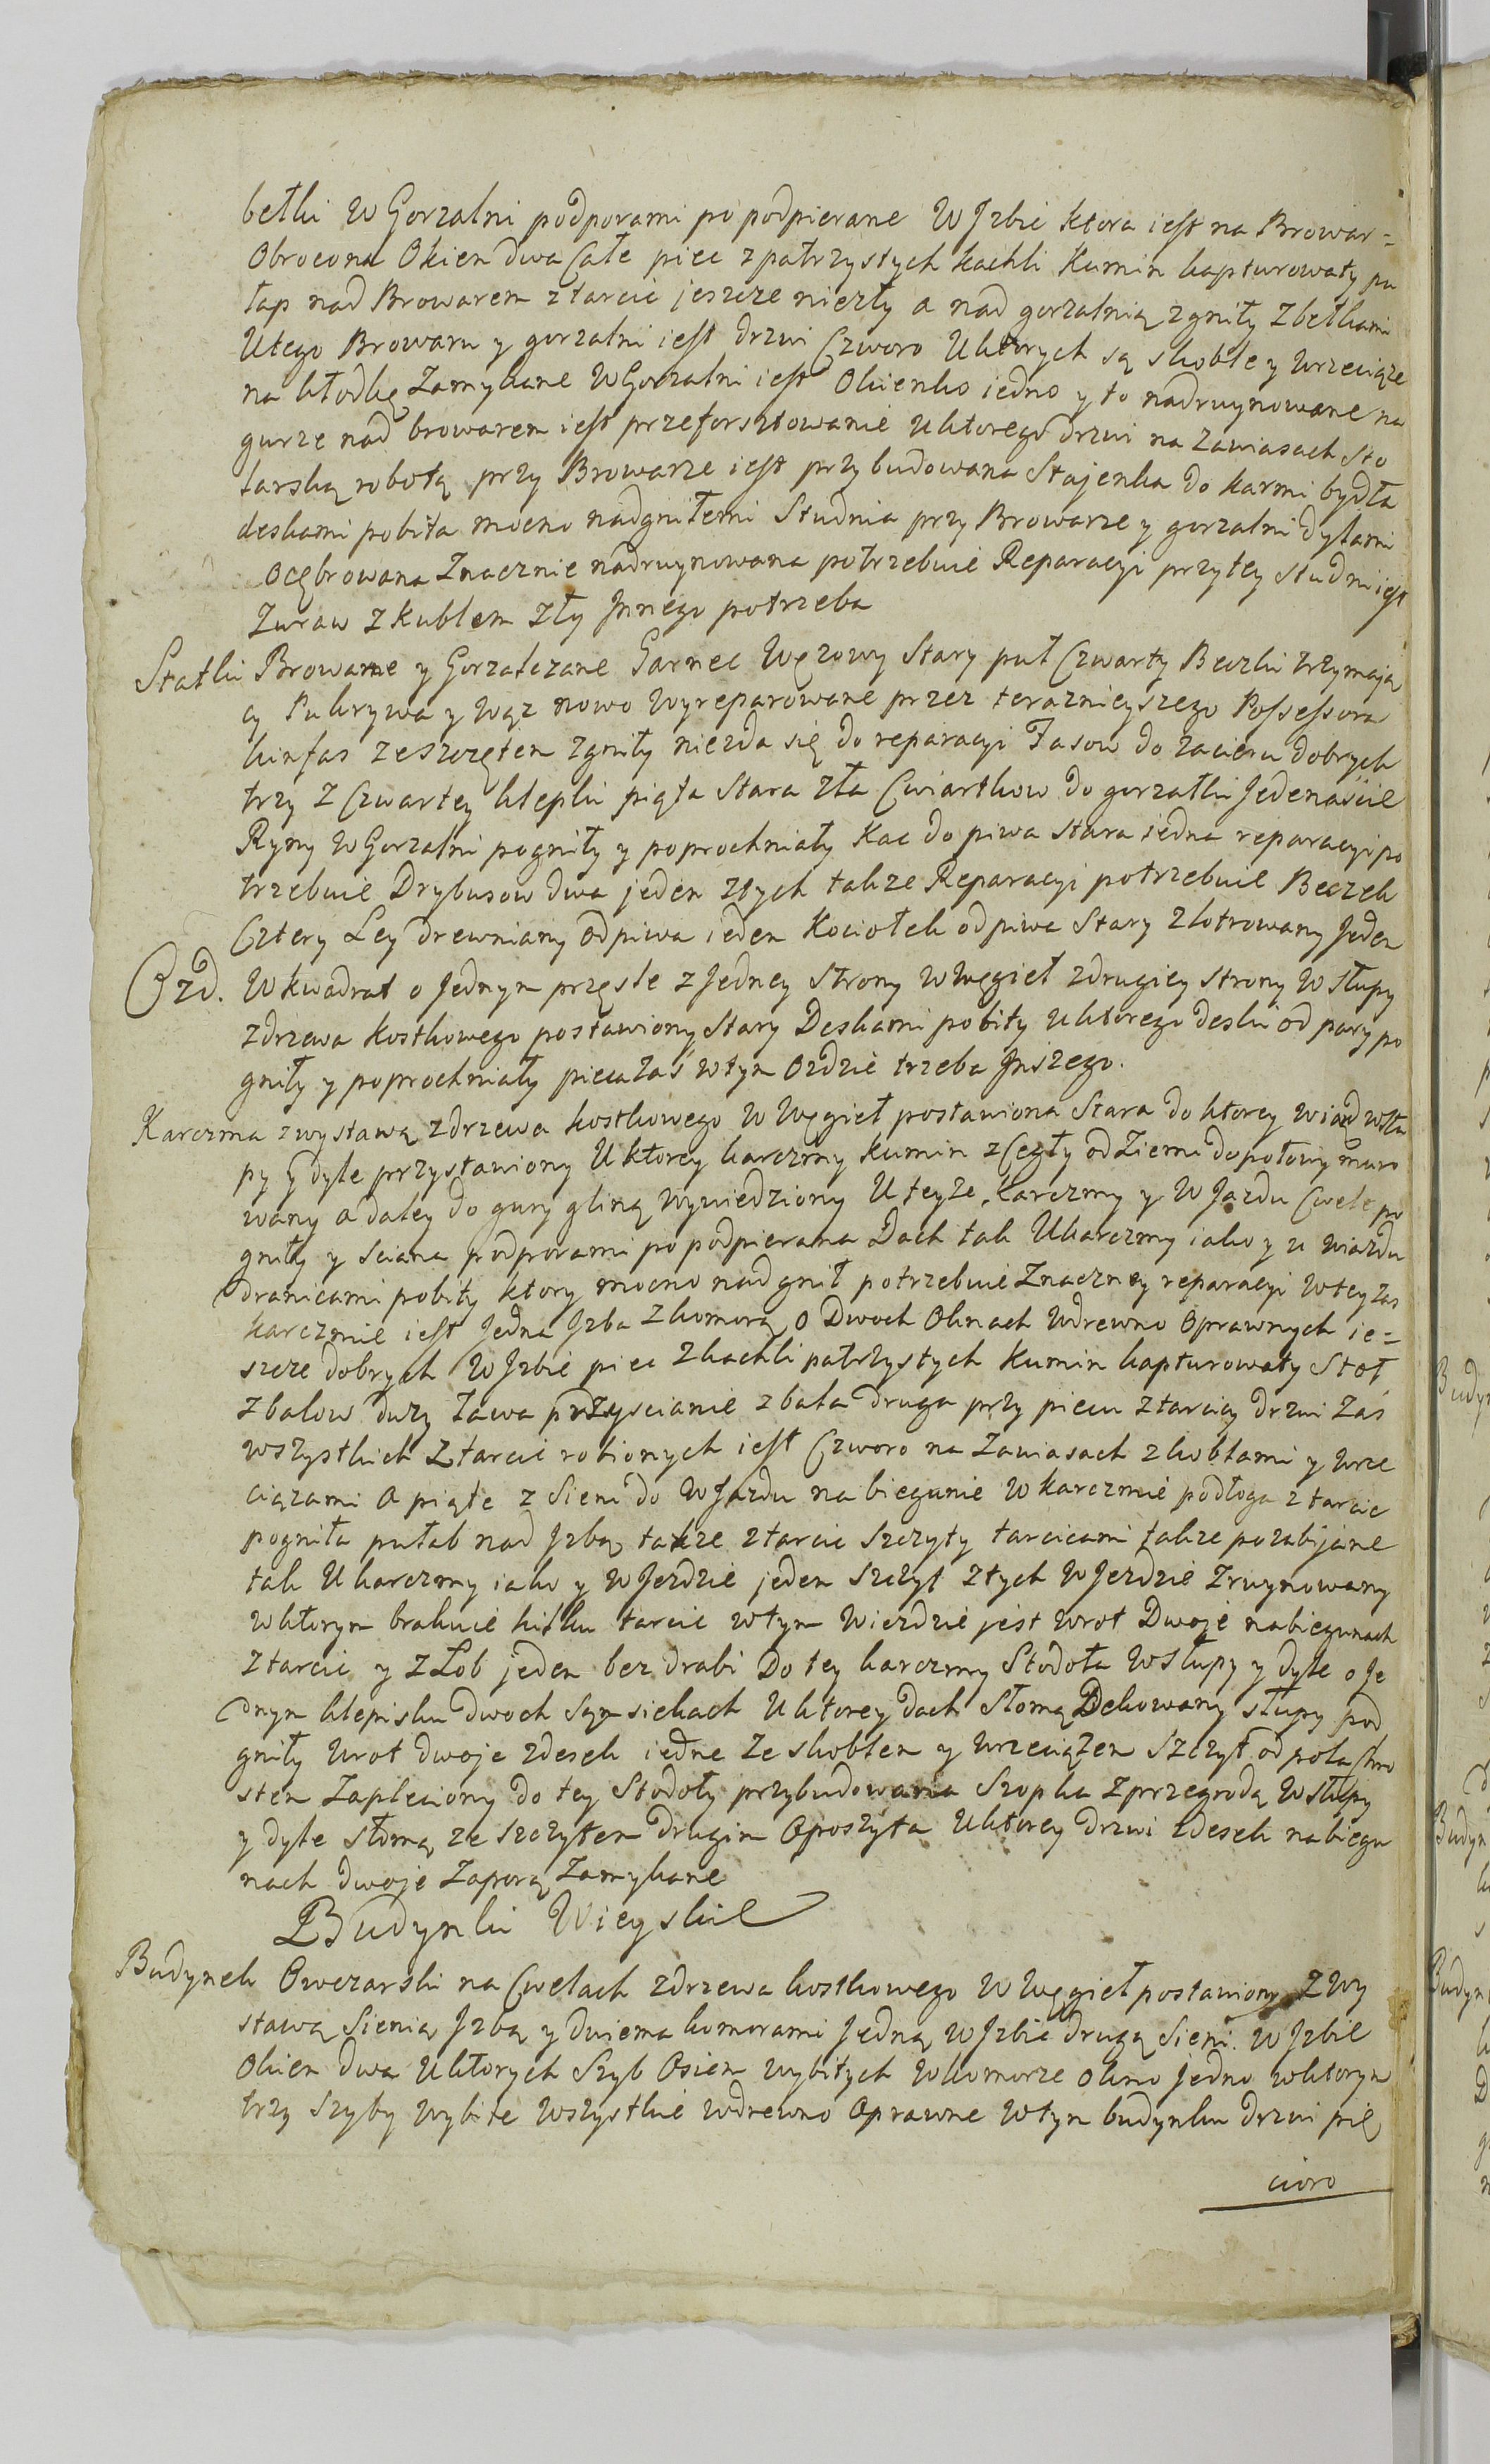 betki w Gorzalni podporami po podpierane w Jzbie ktora iest na Browar=
Obrocona Okien dwa Całe piec z patrzystych kachli kumin kapturowaty pu
łap nad Browarem z tarcic jeszcze niezły a nad gorzalnią zgniły z betkami
U tego Browaru y gorzalni iest drzwi Czworo Uktorych są skoble y wrzeciąze
na kłodkę Zamykane w Gorzalni iest Okienko iedno y to nadruynowane na
gurze nad browarem iest przeforsztowanie uktorego drzwi na zawiasach sto
larską robotą przy Browarze iest przybudowana Stajenka do karmi bydła
deskami pobita mocno nadgniłemi Studnia przy Browarze y gorzalni dylami
Ocębrowana Znacznie nadruynowana potrzebuie Reparacyi przytey studni iest
Zuraw z kublem zły Jnnego potrzeba
Statki Browarne y Gorzałczane Garnec Węzowy Stary puł Czwarty Beczki trzymają
cy Pukrywa y wąz nowo wyreparowane przez teraznieyszego Possessora
kinfas ze szczętem zgniły niezda się do reparacyi Fasow do zacieru dobrych
trzy z Czwartey klepki piąta Stara zła Cwiartkow do gorzałki Jedenaście
Rynny w Gorzalni pogniły y poprochniały Kac do piwa stara iedna reparacyi po
trzebuie Drybusow dwa jeden ztych takze Reparacyi potrzebuie Beczek
Cztery Ley drewniany od piwa ieden Kociołek od piwa Stary zlotrowany Jeden
Ozd. W kwadrat o Jednym przęsle z Jedney strony w węgieł zdrugiey strony w słupy
zdrzewa kostkowego postawiony Stary Deskami pobity uktorego deski od pary po
gniły y poprochniały pieca zaś wtym Ozdzie trzeba Jnszego.
Karczma zwystawą zdrzewa kostkowego w Węgieł postawiona Stara do ktorey wiazd wsłu
py y dyle przystawiony U ktorey karczmy kumin z Cegły od Ziemi do połowy muro
wany a daley do gury gliną wywiedziony U teyze Karczmy y w Jazdu Cwele po
gniły y sciana podporami po podpierana Dach tak Ukarczmy iako y u wiazdu
dranicami pobity ktory mocno nadgnił potrzebuie Znaczney reparacyi w tey zas
karczmie iest Jedna Jzba z komorą o Dwoch Oknach wdrewno Oprawnych ie=
szcze dobrych w Jzbie piec z kachli patrzystych kumin kapturowaty Stoł
z balow duzy Ława przy scianie z bala druga przy piecu ztarcicy drzwi Zaś
wszystkich z tarcic robionych iest Czworo na Zawiasach z koblami y wrze
ciązami a piąte z Sieni do w Jazdu na biegunie w karczmie podłoga z tarcic
pogniła pułab nad Jzbą takze z tarcic Szczyty tarcicami takze pozabijane
tak Ukarczmy iako y w Jezdzie jeden Szczyt ztych w Jezdzie Zruynowany
w ktorym brakuie kilku tarcic w tym Wiezdzie jest wrot Dwoje na biegunach
z tarcic y z Łob jeden bez drabi Do tey karczmy Stodoła w słupy y dyle o Je
dnym klepisku dwoch Sąsiekach U ktorey dach Słomą Dekowany słupy pod
gniły wrot dwoje zdesek iedne ze skoblem y wrzeciązem Szczyt od pola Chro
stem zapleciony do tey Stodoły przybudowana Szopka z przegrodą w słupy
y dyle słomą ze szczytem drugim Oposzyta Uktorey drzwi zdesek na biegu
nach dwoje zaporą zamykane
Budynki Wieyskie
Budynek Owczarski na Cwelach zdrzewa kostkowego w Węgieł postawiony z wy
stawą Sienią Jzbą y dwiema komorami Jedną w Jzbie drugą Sieni. w Jzbie
Okien dwa Uktorych Szyb Osiem wybitych w komorze okno Jedno w ktorym
trzy Szyby wybite wszystkie wdrewno Oprawne w tym budynku drzwi pię
cioro